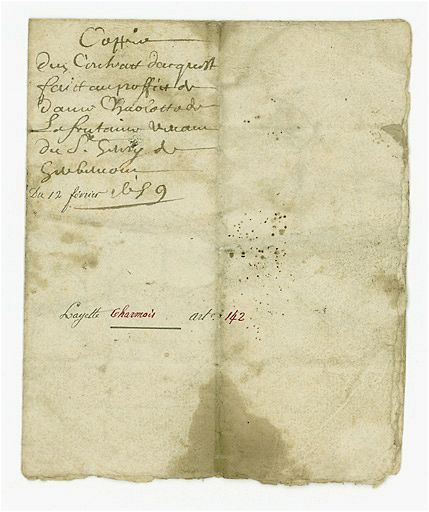 Coppie
d'un Contract dacquest
faict au proffict de
dame Charlotte de
La fontaine
du Sr. de
Du 12 février 1659
Layette Charmois art. 142